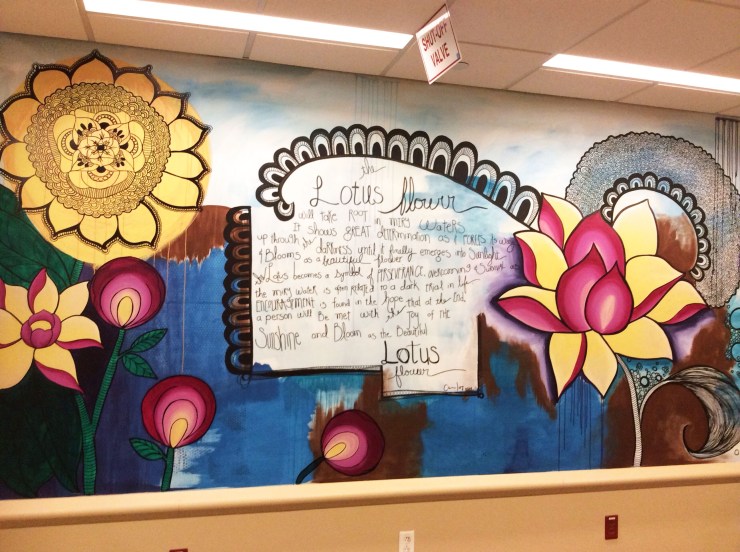 SHUT-OFF
VALVE
the
Lotus flower
will take ROOT in miry WATERS
It shows GREAT determination as it FORCES its way
up through the darkness until it finally emerges into Sunlight
& Blooms as a beautiful flower
the Lotus becomes a symbol of PERSEVERANCE, overcoming
the miry water is often related to a dark trial in life
ENCOURAGEMENT is found in the hope that at the End
a person will Be met with the Joy of THE
Sunshine and Bloom as the Beautiful
Lotus
flower